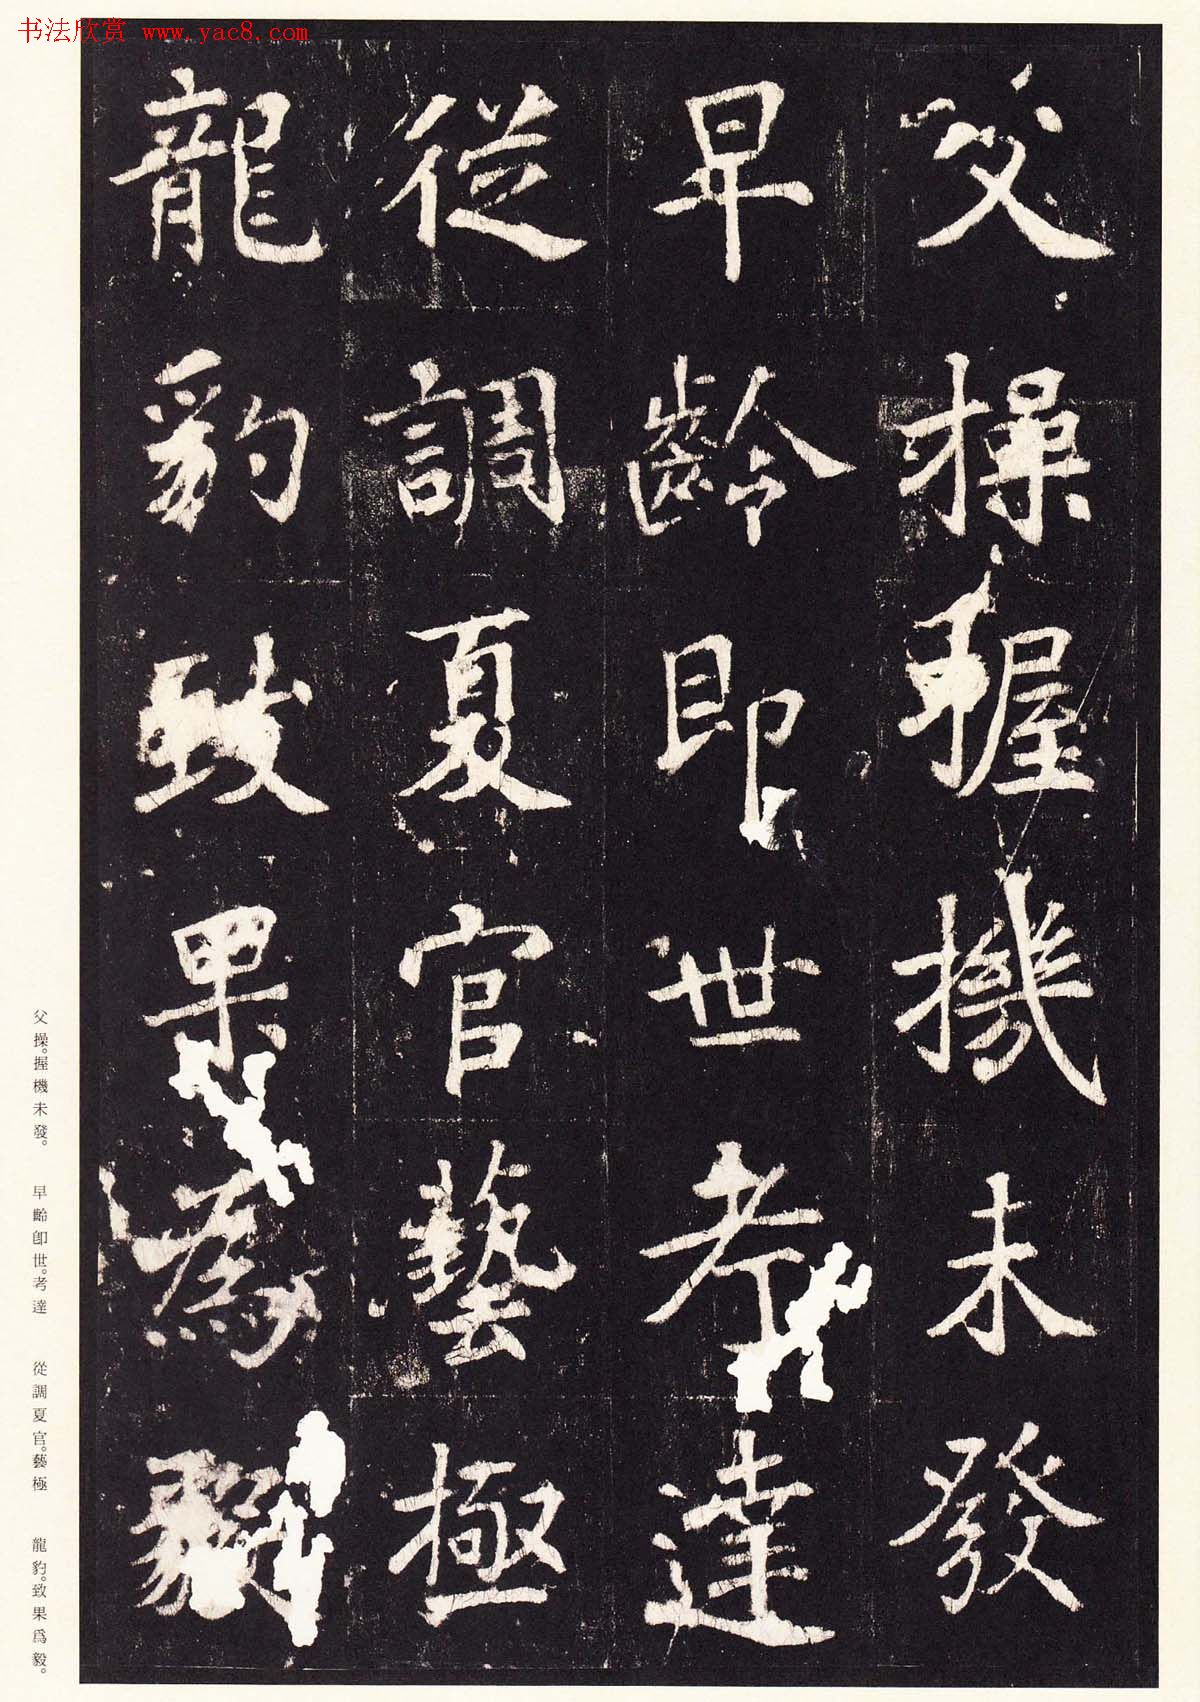 书法欣赏 www.yac8.com
父操握機未發
早齡即世考達
從調夏官藝極
龍豹致果為毅
父操。握機未發。 早齡卽世。考達 從調夏官。藝極 龍豹。致果爲毅。